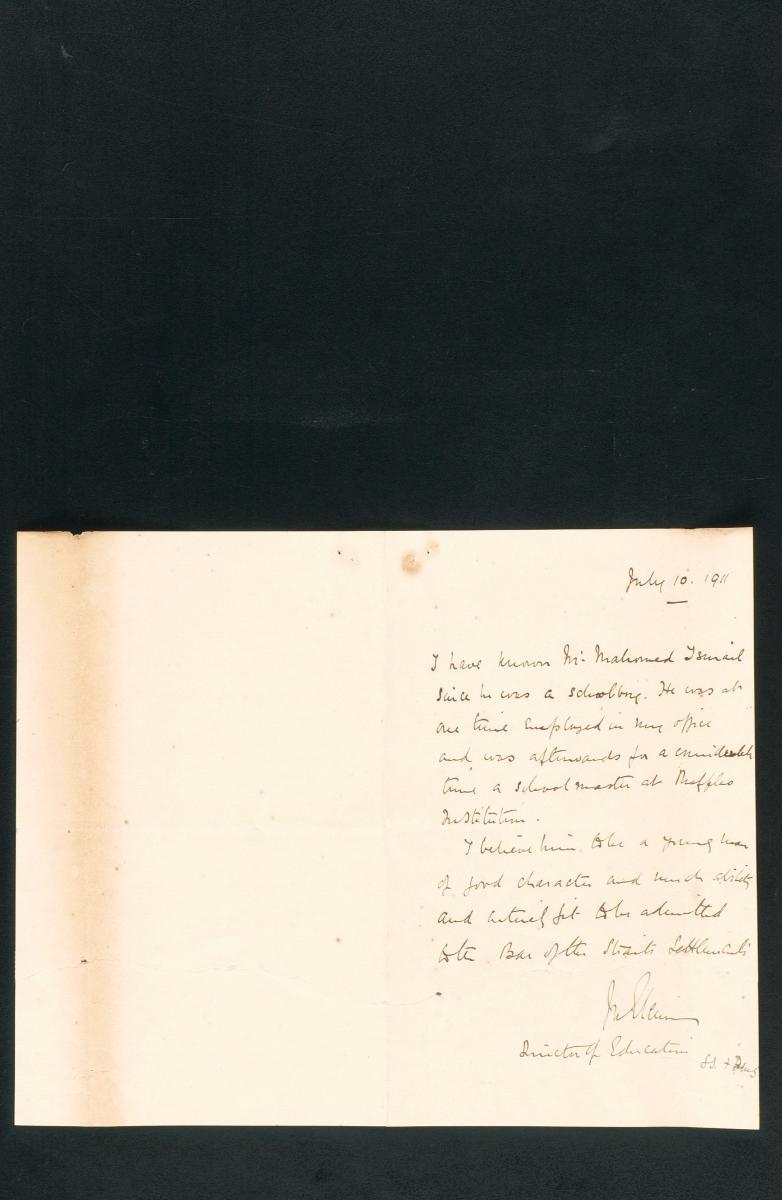 July 10. 1911
I have known Mr. Mahomed Ismail
since he was a schoolboy. He was at
one time employed in my office
and was afterwards for a considerable
time a schoolmaster at Raffles
Institution.
I believe him to be a young man
of good character and much ability
and entirely fit to be admitted
to the Bar of the Straits Settlements
Director of Education
S.S. +